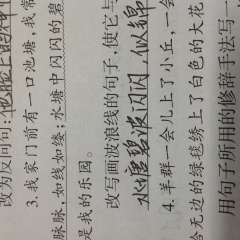 改为反问句:他脸上的神
3. 我家门前有一口池塘,我常
脉脉,如线如缕;水塘中闪闪的碧
是我的乐园。
改写画波浪线的句子,使它与
水塘碧波闪闪,似锦
4. 羊群一会儿上了小丘,一会
给无边的绿毯绣上了白色的大花
用句子所用的修辞手法写一